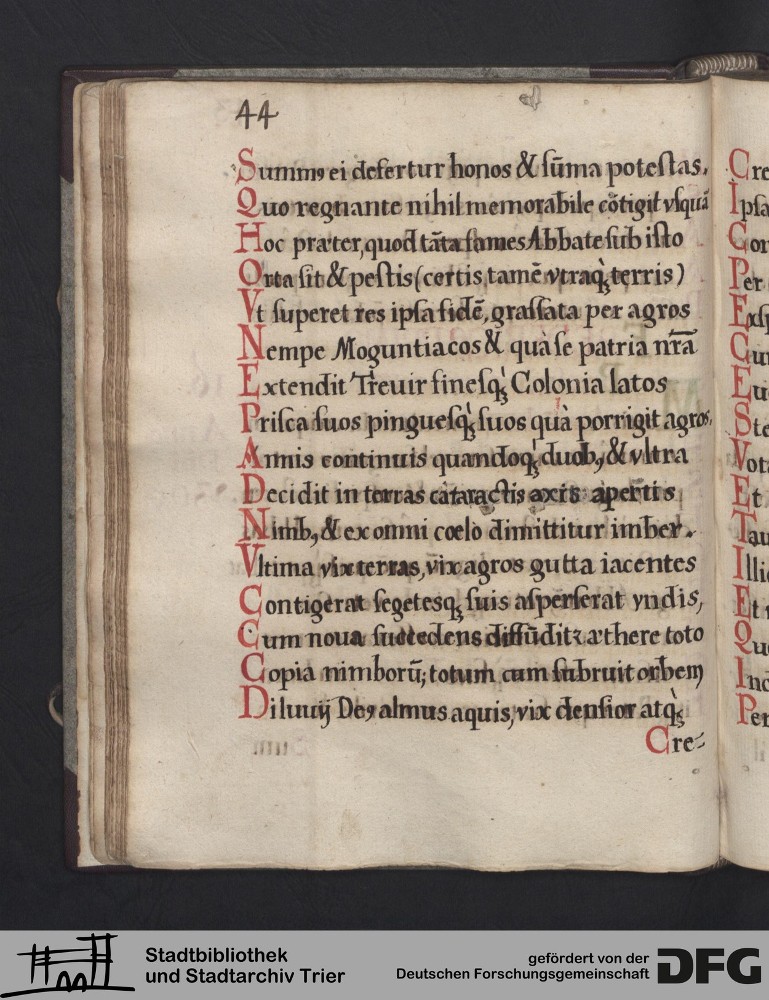 44
Summꝰ ei defertur honos & sūma potestas.
Quo regnante nihil memorabile cōtigit vsquā
Hoc præter, quod tāta fames Abbate sub isto
Orta sit & pestis (certis tamē vtraqꝫ terris)
Vt superet res ipsa fidē, grassata per agros
Nempe Moguntiacos & quà se patria nr̄a
Extendit Treuir finesqꝫ Colonia latos
Prisca suos pinguesqꝫ suos quà porrigit agros.
Annis continuis quandoqꝫ duobꝰ & vltra
Decidit in terras cataractis axis apertis
Nimbꝰ, & ex omni coelo dimittitur imber.
Vltima vix terras, vix agros gutta iacentes
Contigerat segetesqꝫ suis asperserat vndis,
Cum noua succedens diffūditꝛ æthere toto
Copia nimborū; totum cum subruit orbem
Diluuij Deꝰ almus aquis, vix densior atqꝫ
Cre-
Cre
Ipsa
Con
Per
Exsp
Cur
Eu
Ste
Vota
Et
Tau
Illic
Et
Quo
Inc
Per
Stadtbibliothek
und Stadtarchiv Trier
gefördert von der
Deutschen Forschungsgemeinschaft
DFG